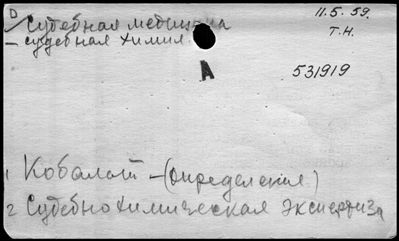 D
Судебная медицина
11.5.59.
– судебная химия.
Т.Н.
A
531919
1 Кобальт – (определение)
2 Судебнохимическая экспертиза